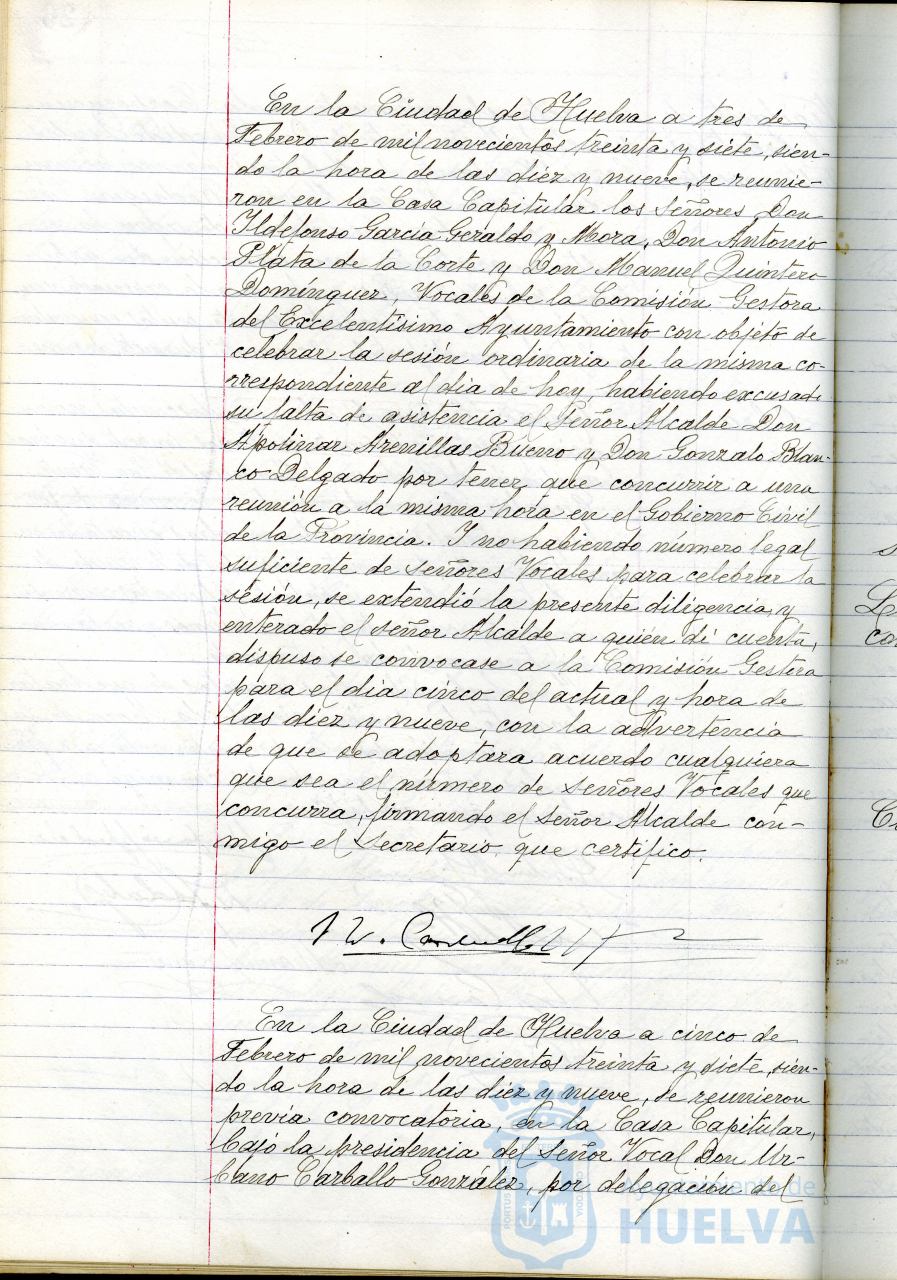 En la Ciudad de Huelva a tres de
Febrero de mil novecientos treinta y siete, sien-
do la hora de las diez y nueve, se reunie-
ron en la Casa Capitular los señores Don
Ildefonso García-Geraldo y Mora, Don Antonio
Plata de la Corte y Don Manuel Quintero
Domínguez, Vocales de la Comisión Gestora
del Excelentísimo Ayuntamiento con objeto de
celebrar la sesión ordinaria de la misma co-
rrespondiente al día de hoy, habiendo excusado
su falta de asistencia el Señor Alcalde Don
Apolinar Arenillas Bueno y Don Gonzalo Blan-
co Delgado por tener que concurrir a una
reunión a la misma hora en el Gobierno Civil
de la Provincia. Y no habiendo número legal
suficiente de señores Vocales para celebrar la
sesión, se extendió la presente diligencia, y
enterado el señor Alcalde a quién di cuenta,
dispuso se convocase a la Comisión Gestora
para el día cinco del actual y hora de
las diez y nueve, con la advertencia
de que se adoptara acuerdo cualquiera
que sea el número de señores Vocales que
concurra, firmando el señor Alcalde con-
migo el secretario, que certifico.
En la Ciudad de Huelva a cinco de
Febrero de mil novecientos treinta y siete, sien-
do la hora de las diez y nueve, se reunieron
previa convocatoria, en la Casa Capitular,
bajo la presidencia del señor Vocal Don Ur-
bano Carballo González, por delegación del
Ayuntamiento de
HUELVA